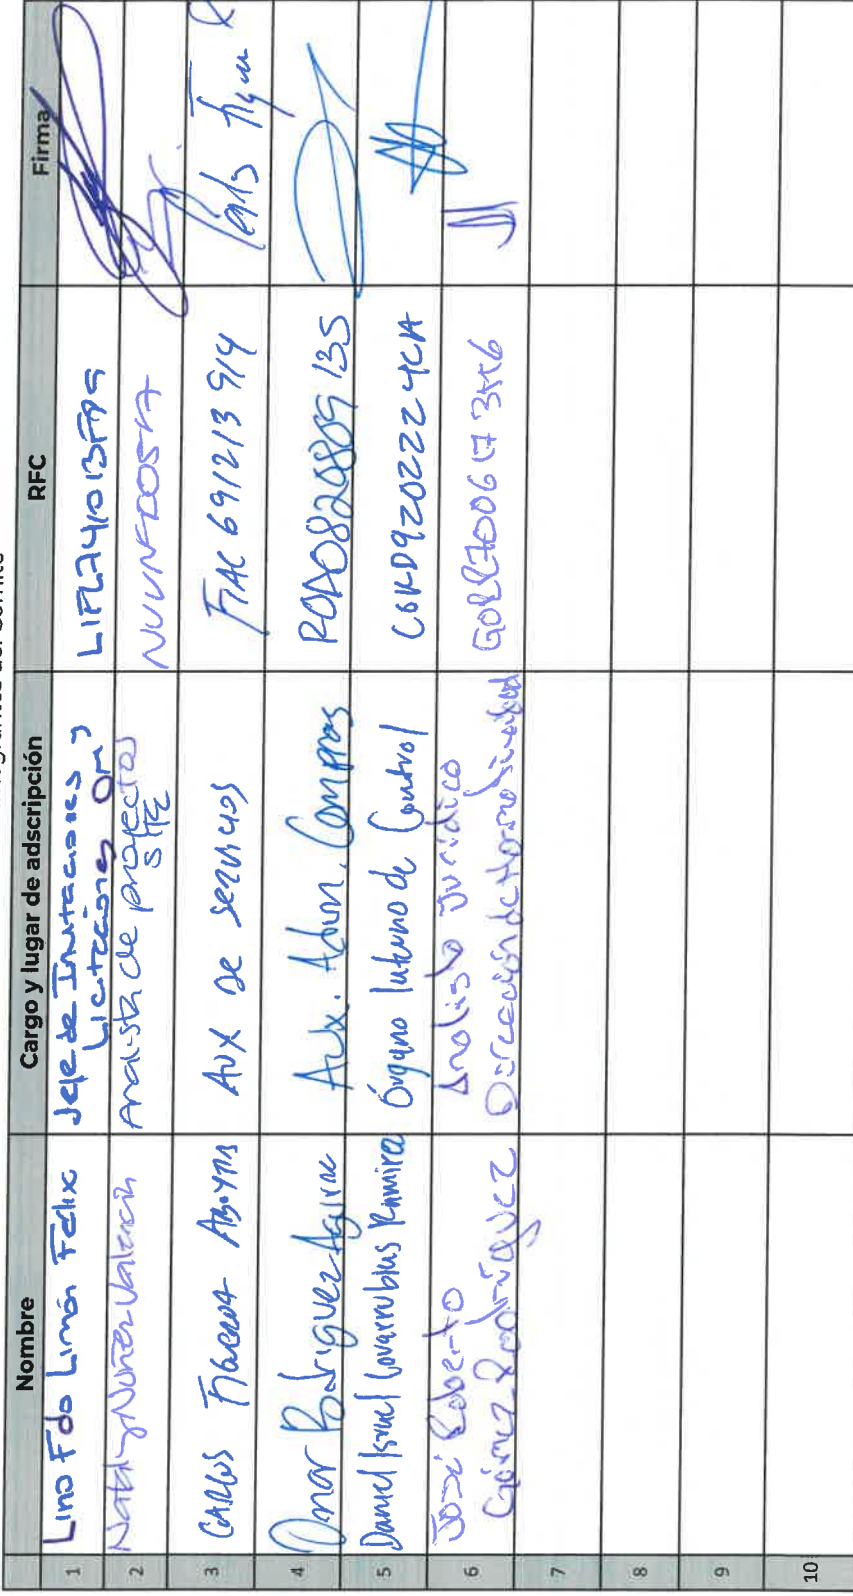 Integrantes del Comité
Nombre Cargo y lugar de adscripción RFC Firma
1 Lino Fdo Limón Felix Jefe de Invitaciones y
Licitaciones OM
2 Nataly Nuñez Valencia Analista de proyectos
3 CARLOS FIGUEROA ABOYTES AUX DE SERVICIOS FIAC 691213 914 Carlos Figueroa
4 Omar Rodriguez Aguirre Aux. Admn. Compras ROAO820809 135
5 Daniel Israel Covarrubias Ramirez Órgano Interno de Control CORD920222 4CA
6 José Roberto Analista Jurídico
Gómez Rodríguez Dirección de Normatividad GORR700617 3M6
7
8
9
10